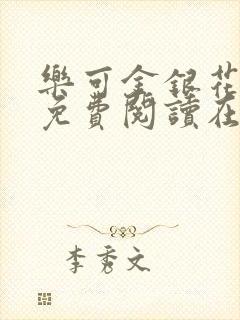 樂可金銀花
免費閱讀在
李秀文